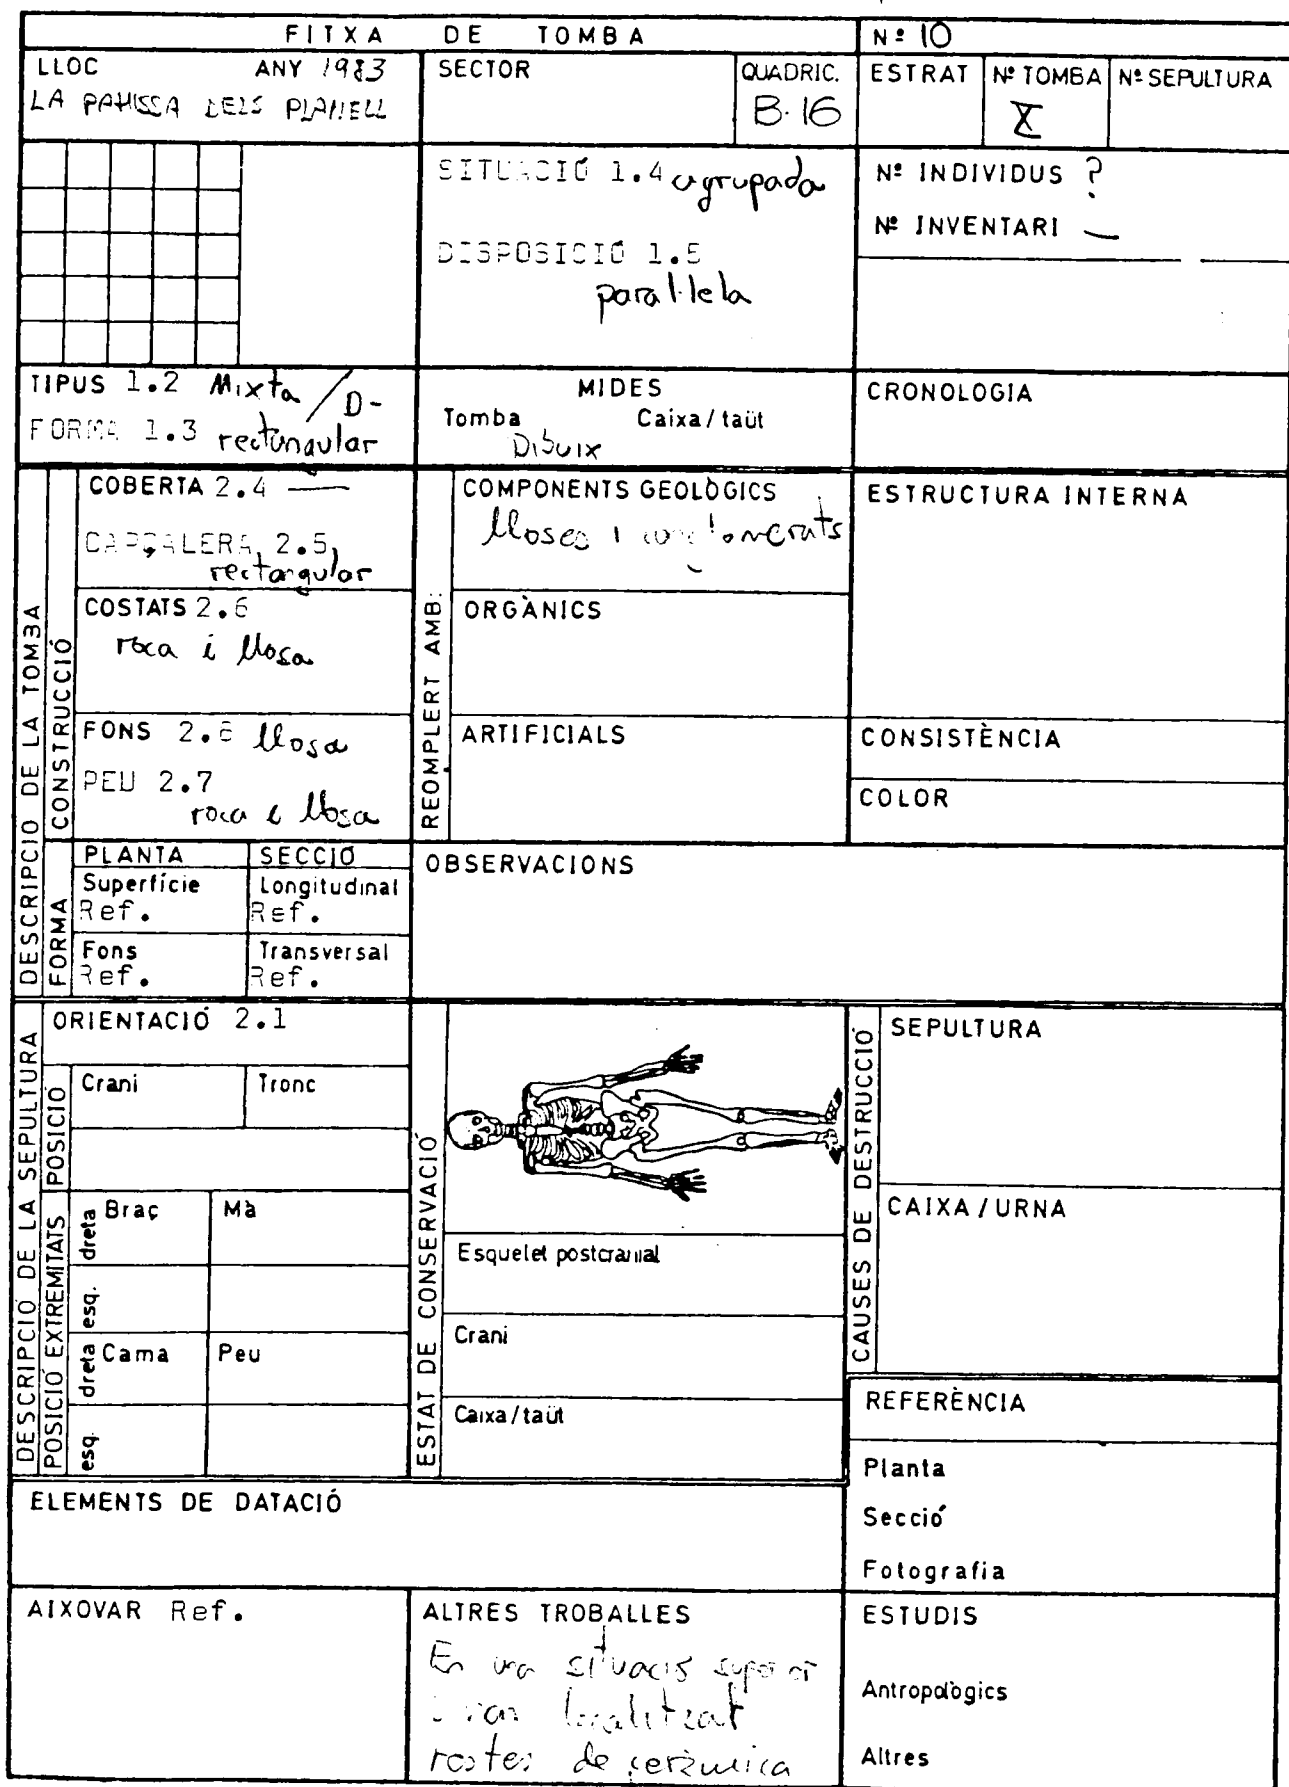 FITXA DE TOMBA
Nº 10
LLOC ANY 1983
LA PAHISSA DELS PLANELL
SECTOR
QUADRIC.
B.16
ESTRAT
Nº TOMBA
X
Nº SEPULTURA
SITUACIÓ 1.4 agrupada
DISPOSICIÓ 1.5
paral·lela
Nº INDIVIDUS ?
Nº INVENTARI —
TIPUS 1.2 Mixta / D-
FORMA 1.3 rectangular
MIDES
Tomba Caixa/taüt
Dibuix
CRONOLOGIA
DESCRIPCIO DE LA TOMBA
CONSTRUCCIÓ
COBERTA 2.4 —
CAPÇALERA 2.5
rectangular
COSTATS 2.6
roca i llosa
FONS 2.6 llosa
PEU 2.7
roca i llosa
REOMPLERT AMB:
COMPONENTS GEOLÒGICS
lloses i conglomerats
ORGÀNICS
ARTIFICIALS
ESTRUCTURA INTERNA
CONSISTÈNCIA
COLOR
FORMA
PLANTA
SECCIÓ
Superfície
Ref.
Longitudinal
Ref.
Fons
Ref.
Transversal
Ref.
OBSERVACIONS
DESCRIPCIO DE LA SEPULTURA
ORIENTACIÓ 2.1
POSICIÓ
Crani
Tronc
POSICIÓ EXTREMITATS
dreta
Braç
Mà
esq.
dreta
Cama
Peu
esq.
ESTAT DE CONSERVACIÓ
Esquelet postcranial
Crani
Caixa/taüt
CAUSES DE DESTRUCCIÓ
SEPULTURA
CAIXA/URNA
REFERÈNCIA
Planta
Secció
Fotografia
ELEMENTS DE DATACIÓ
AIXOVAR Ref.
ALTRES TROBALLES
En una situació superior
van localitzat
restes de ceràmica
ESTUDIS
Antropològics
Altres